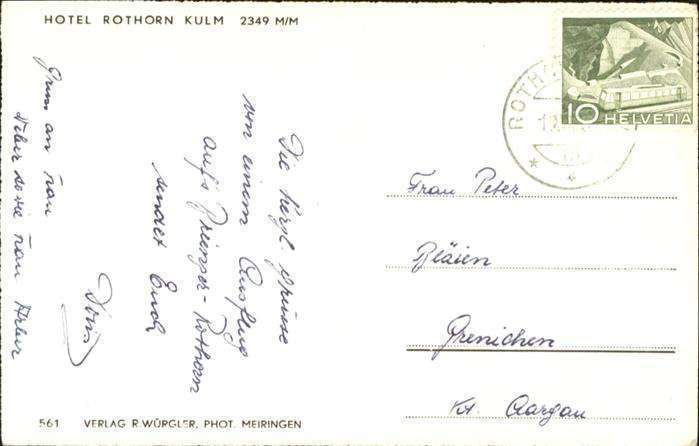 HOTEL ROTHORN KULM 2349 M/M
Die herzl. Grüsse
von einem Ausflug
aufs Brienzer-Rothorn
sendet Euch
Doris
Gruss an Frau
sowie Frau
10 HELVETIA
ROTHO
Frau Peter
Bläien
Grenichen
Kt. Aargau
561 VERLAG R.WÜRGLER, PHOT. MEIRINGEN